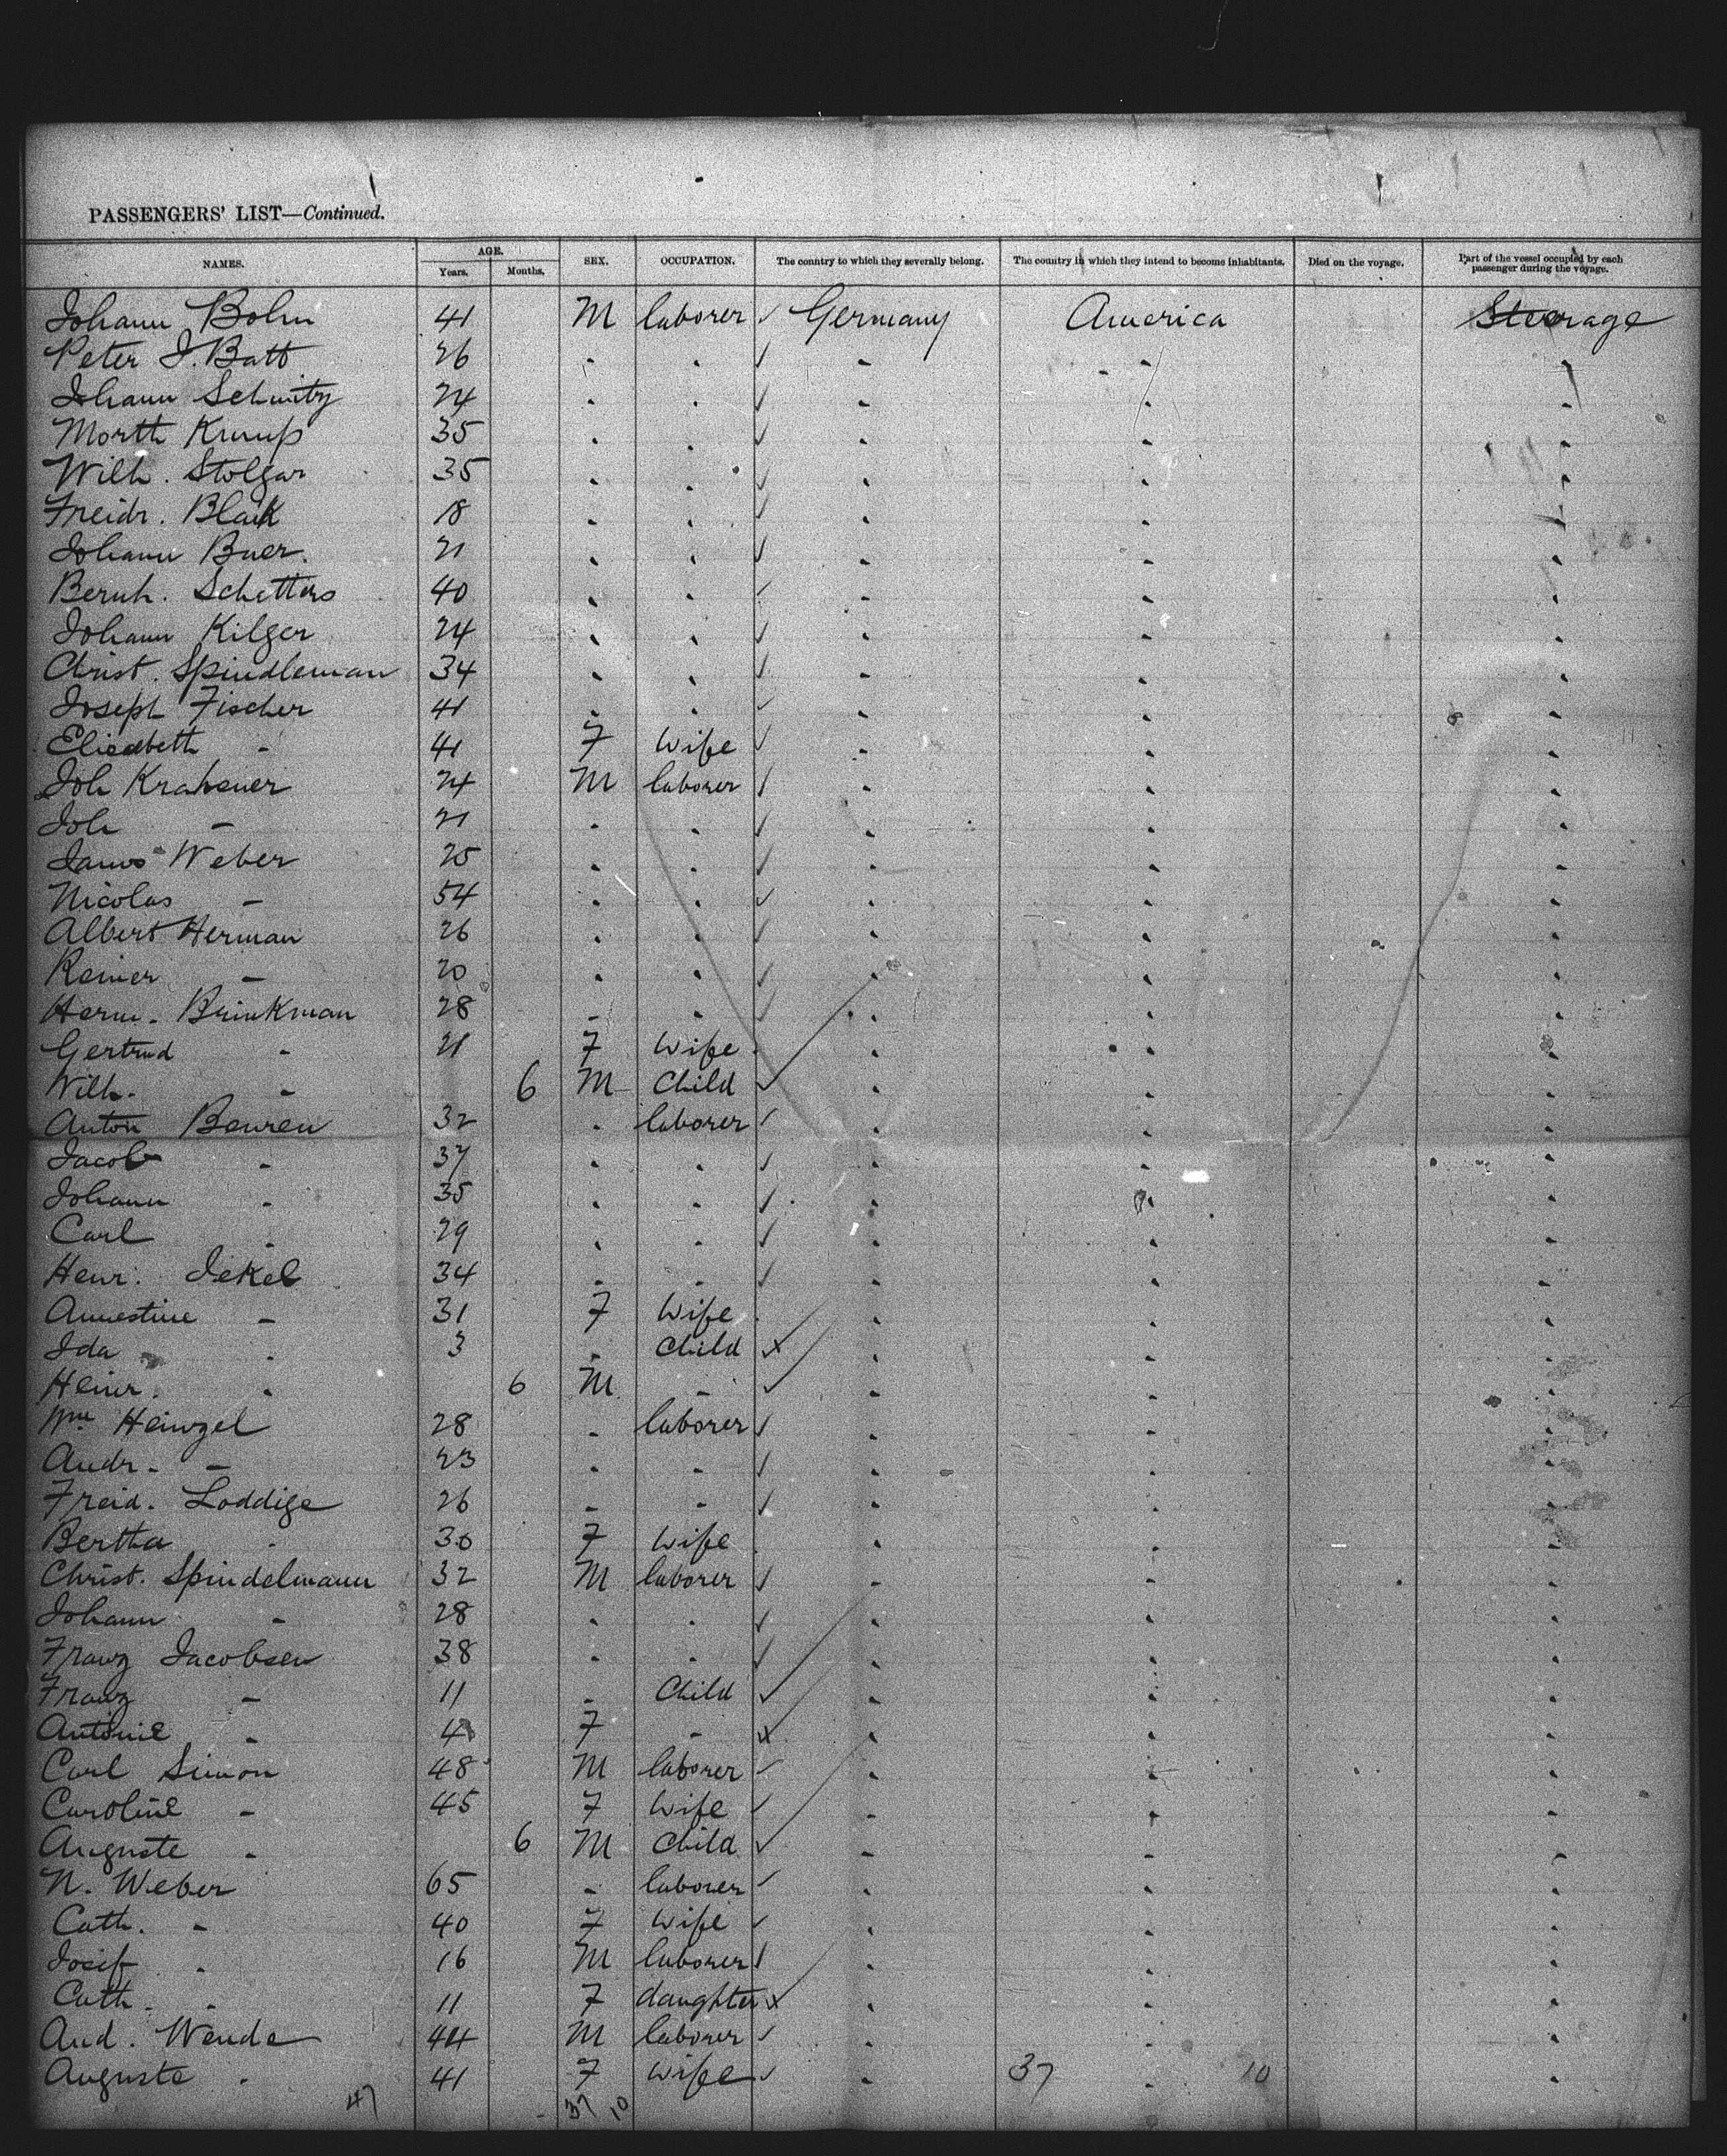 PASSENGERS' LIST—Continued.
NAMES. AGE. Years. Months. SEX. OCCUPATION. The country to which they severally belong. The country in which they intend to become inhabitants. Died on the voyage. Part of the vessel occupied by each passenger during the voyage.
Johann Bohn 41 M laborer ✓ Germany America Steerage
Peter J. Batt 26 " " ✓ " " "
Johann Schmitz 24 " " ✓ " " "
Krump 35 " " ✓ " " "
Wilh. Stolgar 35 " " ✓ " " "
Freidr. Blank 18 " " ✓ " " "
Johann Buer. 21 " " ✓ " " "
Bernh. Schetters 40 " " ✓ " " "
Johann Kilger 24 " " ✓ " " "
Christ. Spindleman 34 " " ✓ " " "
Joseph Fischer 41 " " ✓ " " "
Elisabeth - 41 F Wife ✓ " " "
Joh 24 M laborer ✓ " " "
Joh - 21 " " ✓ " " "
Weber 25 " " ✓ " " "
Nicolas - 54 " " ✓ " " "
Albert Herman 26 " " ✓ " " "
Reiner - 20 " " ✓ " " "
Herm. Brinkman 28 " " ✓ " " "
Gertrud - 21 F Wife " " "
Wilh. - 6 M Child ✓ " " "
Anton Beuren 32 " laborer ✓ " " "
Jacob - 37 " " ✓ " " "
Johann - 35 " " ✓ " " "
Carl - 29 " " ✓ " " "
Henr. Jekel 34 " " ✓ " " "
Annestine - 31 F Wife " " "
Ida - 3 " Child x " " "
Heinr. - 6 M " ✓ " " "
Wm Heinzel 28 " laborer ✓ " " "
Andr. - 23 " " ✓ " " "
Freid. Loddige 26 " " ✓ " " "
Bertha - 30 F Wife " " "
Christ. Spindelmann 32 M laborer ✓ " " "
Johann - 28 " " ✓ " " "
Franz Jacobsen 38 " " ✓ " " "
Franz - 11 " Child ✓ " " "
Antonie - 4 F " x " " "
Carl Simon 48 M laborer ✓ " " "
Caroline - 45 F Wife ✓ " " "
Auguste - 6 M Child ✓ " " "
N. Weber 65 " laborer ✓ " " "
Cath. - 40 F Wife ✓ " " "
Josif - 16 M laborer ✓ " " "
Cath. - 11 F daughter x " " "
And. Wende 44 M laborer ✓ " " "
Auguste - 41 F Wife ✓ " 37 " 10 "
47 37 10